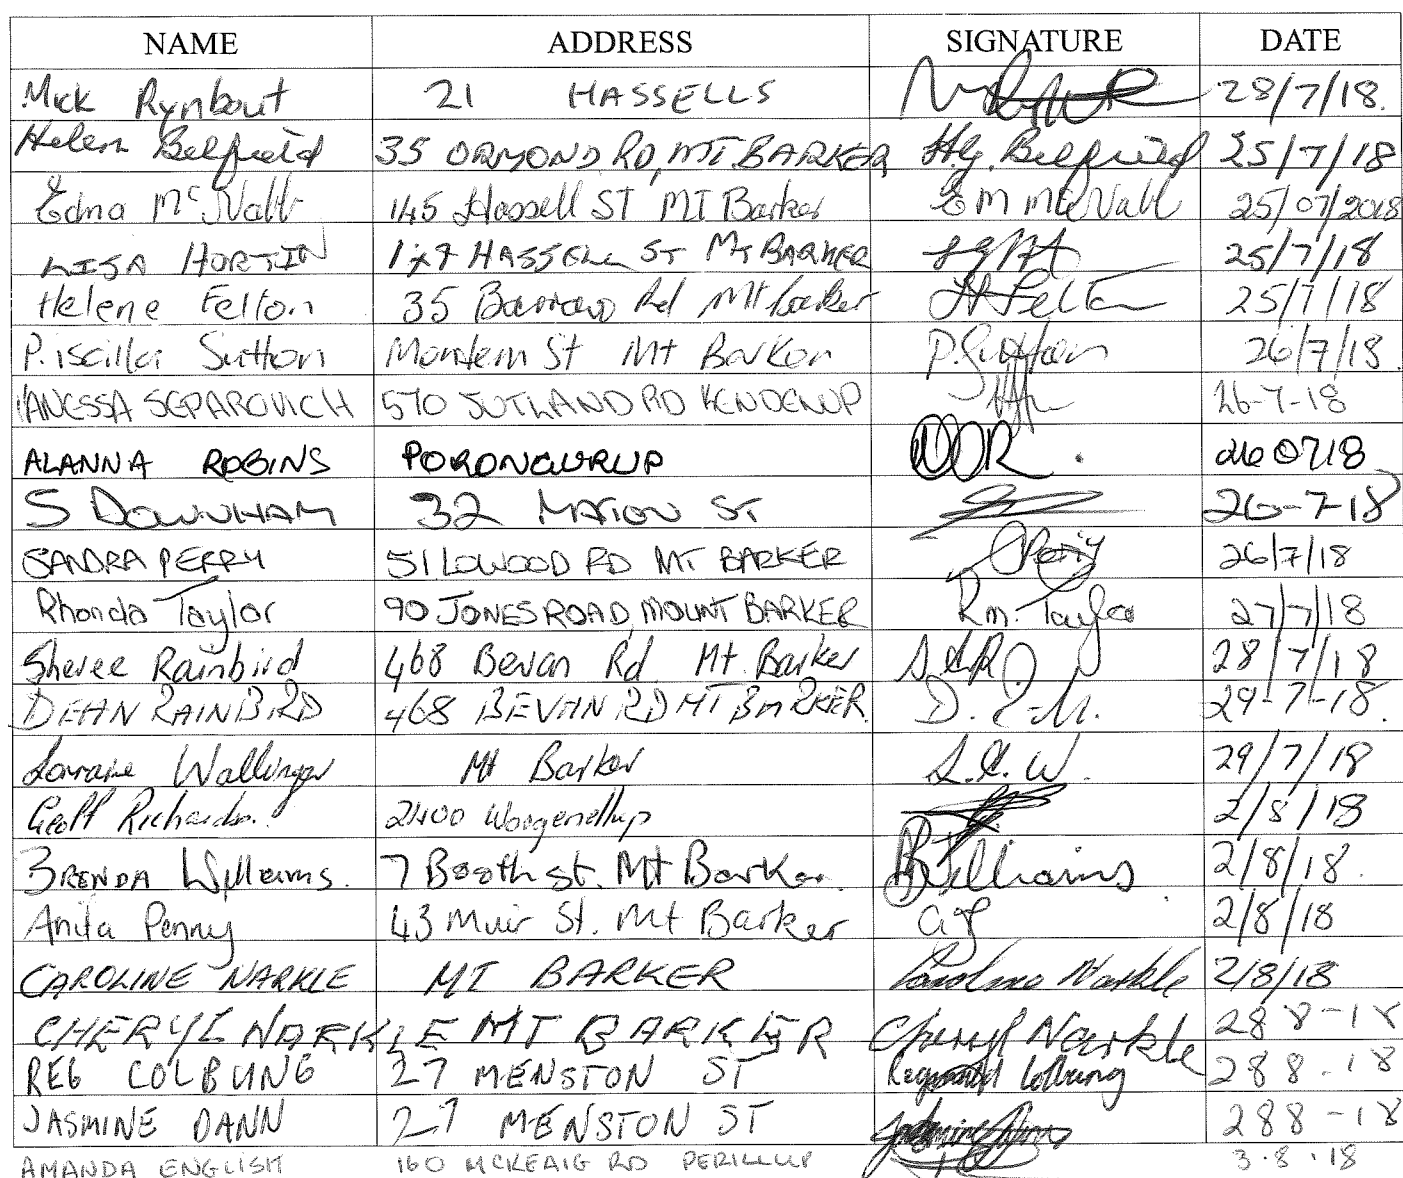 NAME ADDRESS SIGNATURE DATE
Mick Rynbout 21 HASSELLS 28/7/18.
Helen Belfield 35 ORMOND RD, MT BARKER H.G. Belfield 25/7/18
Edna McNabb 145 Hassell ST MT Barker E M McNabb 25/07/2018
LISA HORTIN HASSELL ST MT BARKER 25/7/18
Helene Felton 35 Barrow Rd Mt barker H Felton 25/7/18
Priscilla Sutton St Mt Barker P. Sutton 26/7/18.
VANESSA SEPAROVICH 570 JUTLAND RD KENDENUP 26-7-18
ALANNA ROBINS PORONGURUP 260718
S DOWNHAM 32 MARION ST 26-7-18
SANDRA PERRY 51 LOWOOD RD MT BARKER Perry 26/7/18
Rhonda Taylor 90 JONES ROAD, MOUNT BARKER R.m. Taylor 27/7/18
Sheree Rainbird 468 Bevan Rd Mt. Barker 28/7/18
DEAN RAINBIRD 468 BEVAN RD MT BARKER. 29-7-18.
Lorraine Wallinger Mt Barker L.C. W. 29/7/18
Geoff Richardson. 2400 Woogenellup 2/8/18
BRENDA Williams. 7 Booth st. Mt Barker. B Williams 2/8/18.
Anita Penny 43 Muir St. Mt Barker ap 2/8/18
CAROLINE NARKLE MT BARKER Caroline Narkle 2/8/18
CHERYL NARKLE MT BARKER Cheryl Narkle 28 8-18
REG COLBUNG 27 MENSTON ST Reginald Colbung 28 8-18
JASMINE DANN 27 MENSTON ST Jasmine Dann 288-18
AMANDA ENGLISH 160 MCKEAIG RD PERILLUP 3.8.18